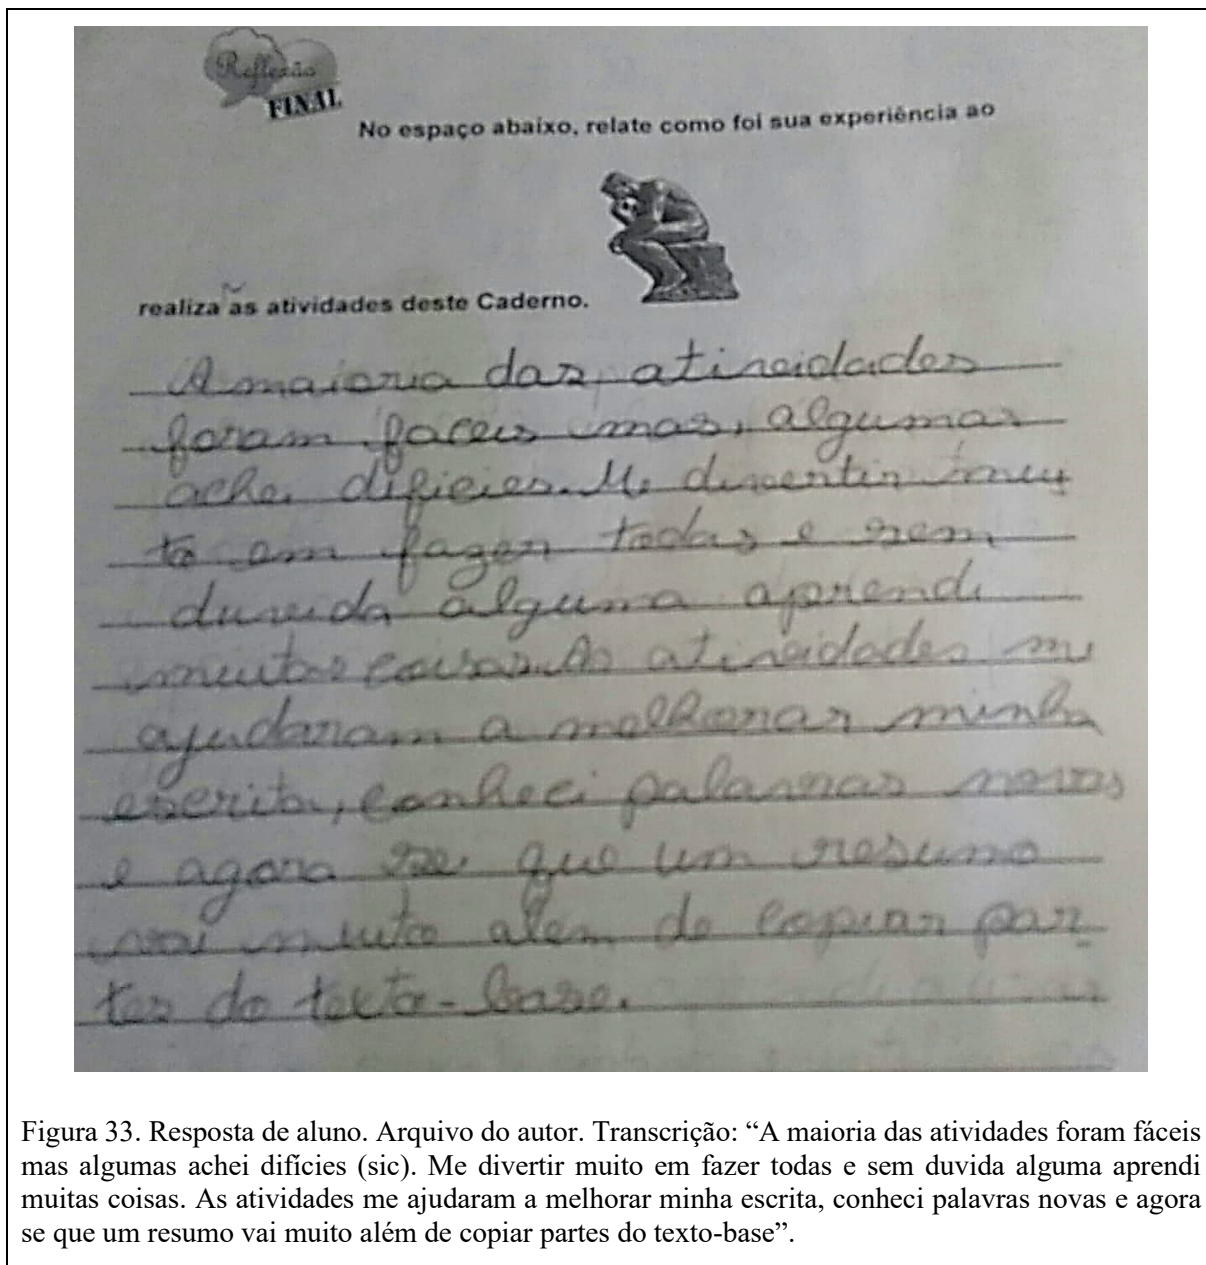 Reflexão
FINAL
No espaço abaixo, relate como foi sua experiência ao
realiza as atividades deste Caderno.
A maioria das atividades
foram faceis mas, algumas
achei dificies. Me divertir mui
to em fazer todas e sem
duvida alguma aprendi
muitas coisas. As atividades me
ajudaram a melhorar minha
escrita, conheci palavras novas
e agora sei que um resumo
vai muito além de copiar par-
tes do texto-base.
Figura 33. Resposta de aluno. Arquivo do autor. Transcrição: “A maioria das atividades foram fáceis
mas algumas achei difícies (sic). Me divertir muito em fazer todas e sem duvida alguma aprendi
muitas coisas. As atividades me ajudaram a melhorar minha escrita, conheci palavras novas e agora
se que um resumo vai muito além de copiar partes do texto-base”.